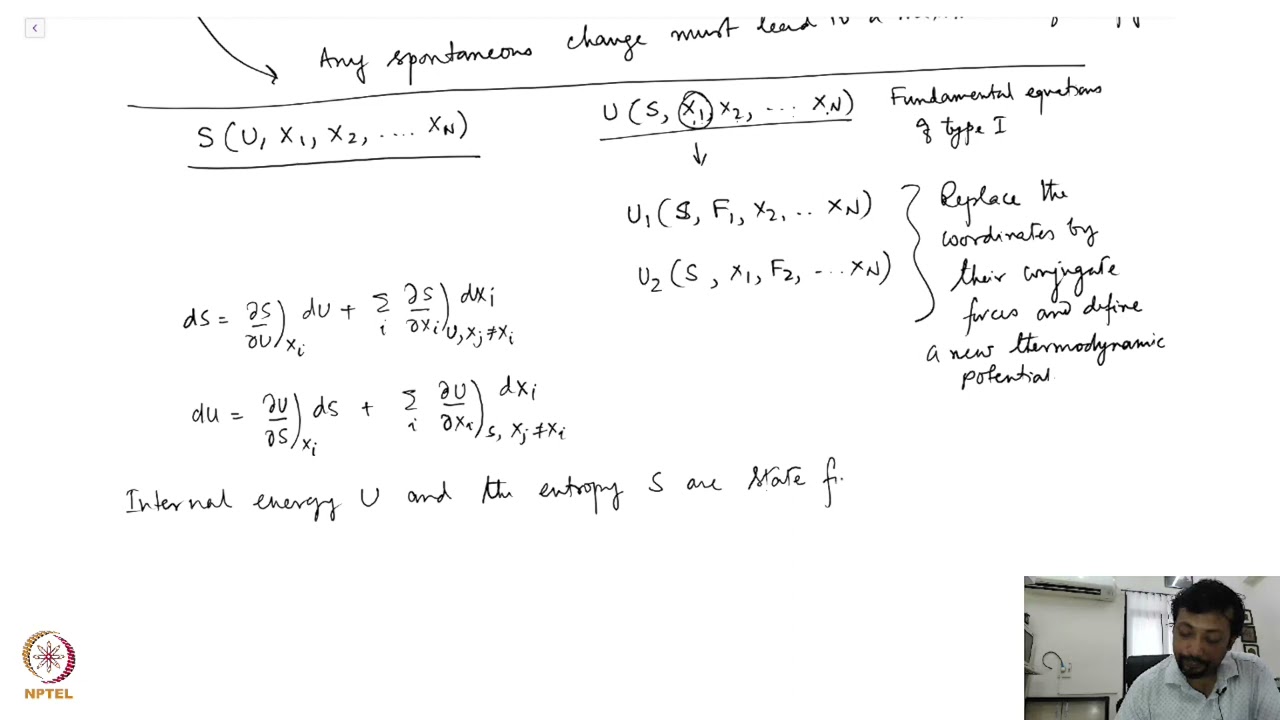 Any spontaneous change must lead to a
S(U, X1, X2, .... XN)
U(S, X1, X2, ... XN) Fundamental equations of type I
U1(S, F1, X2, .. XN)
U2(S, X1, F2, ... XN)
Replace the
coordinates by
their conjugate
forces and define
a new thermodynamic
potential.
dS = ∂S/∂U)Xi dU + Σi ∂S/∂Xi)U, Xj≠Xi dXi
dU = ∂U/∂S)Xi dS + Σi ∂U/∂Xi)S, Xj≠Xi dXi
Internal energy U and the entropy S are state
NPTEL